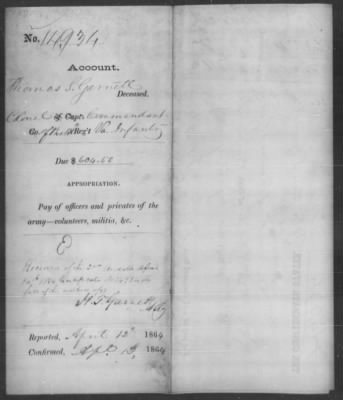 No. 14934
Account.
Thomas S. Garnett
Deceased.
Colonel of Capt. Commandant
Co. of the Reg't Va Infantry
Due $ 604.50
APPROPRIATION.
Pay of officers and privates of the
army—volunteers, militia, &c.
E
Received of the 2nd Auditor
1864
H. T. Garnett
Atty
Reported, April 12th 1864
Confirmed, Apl 13, 1864